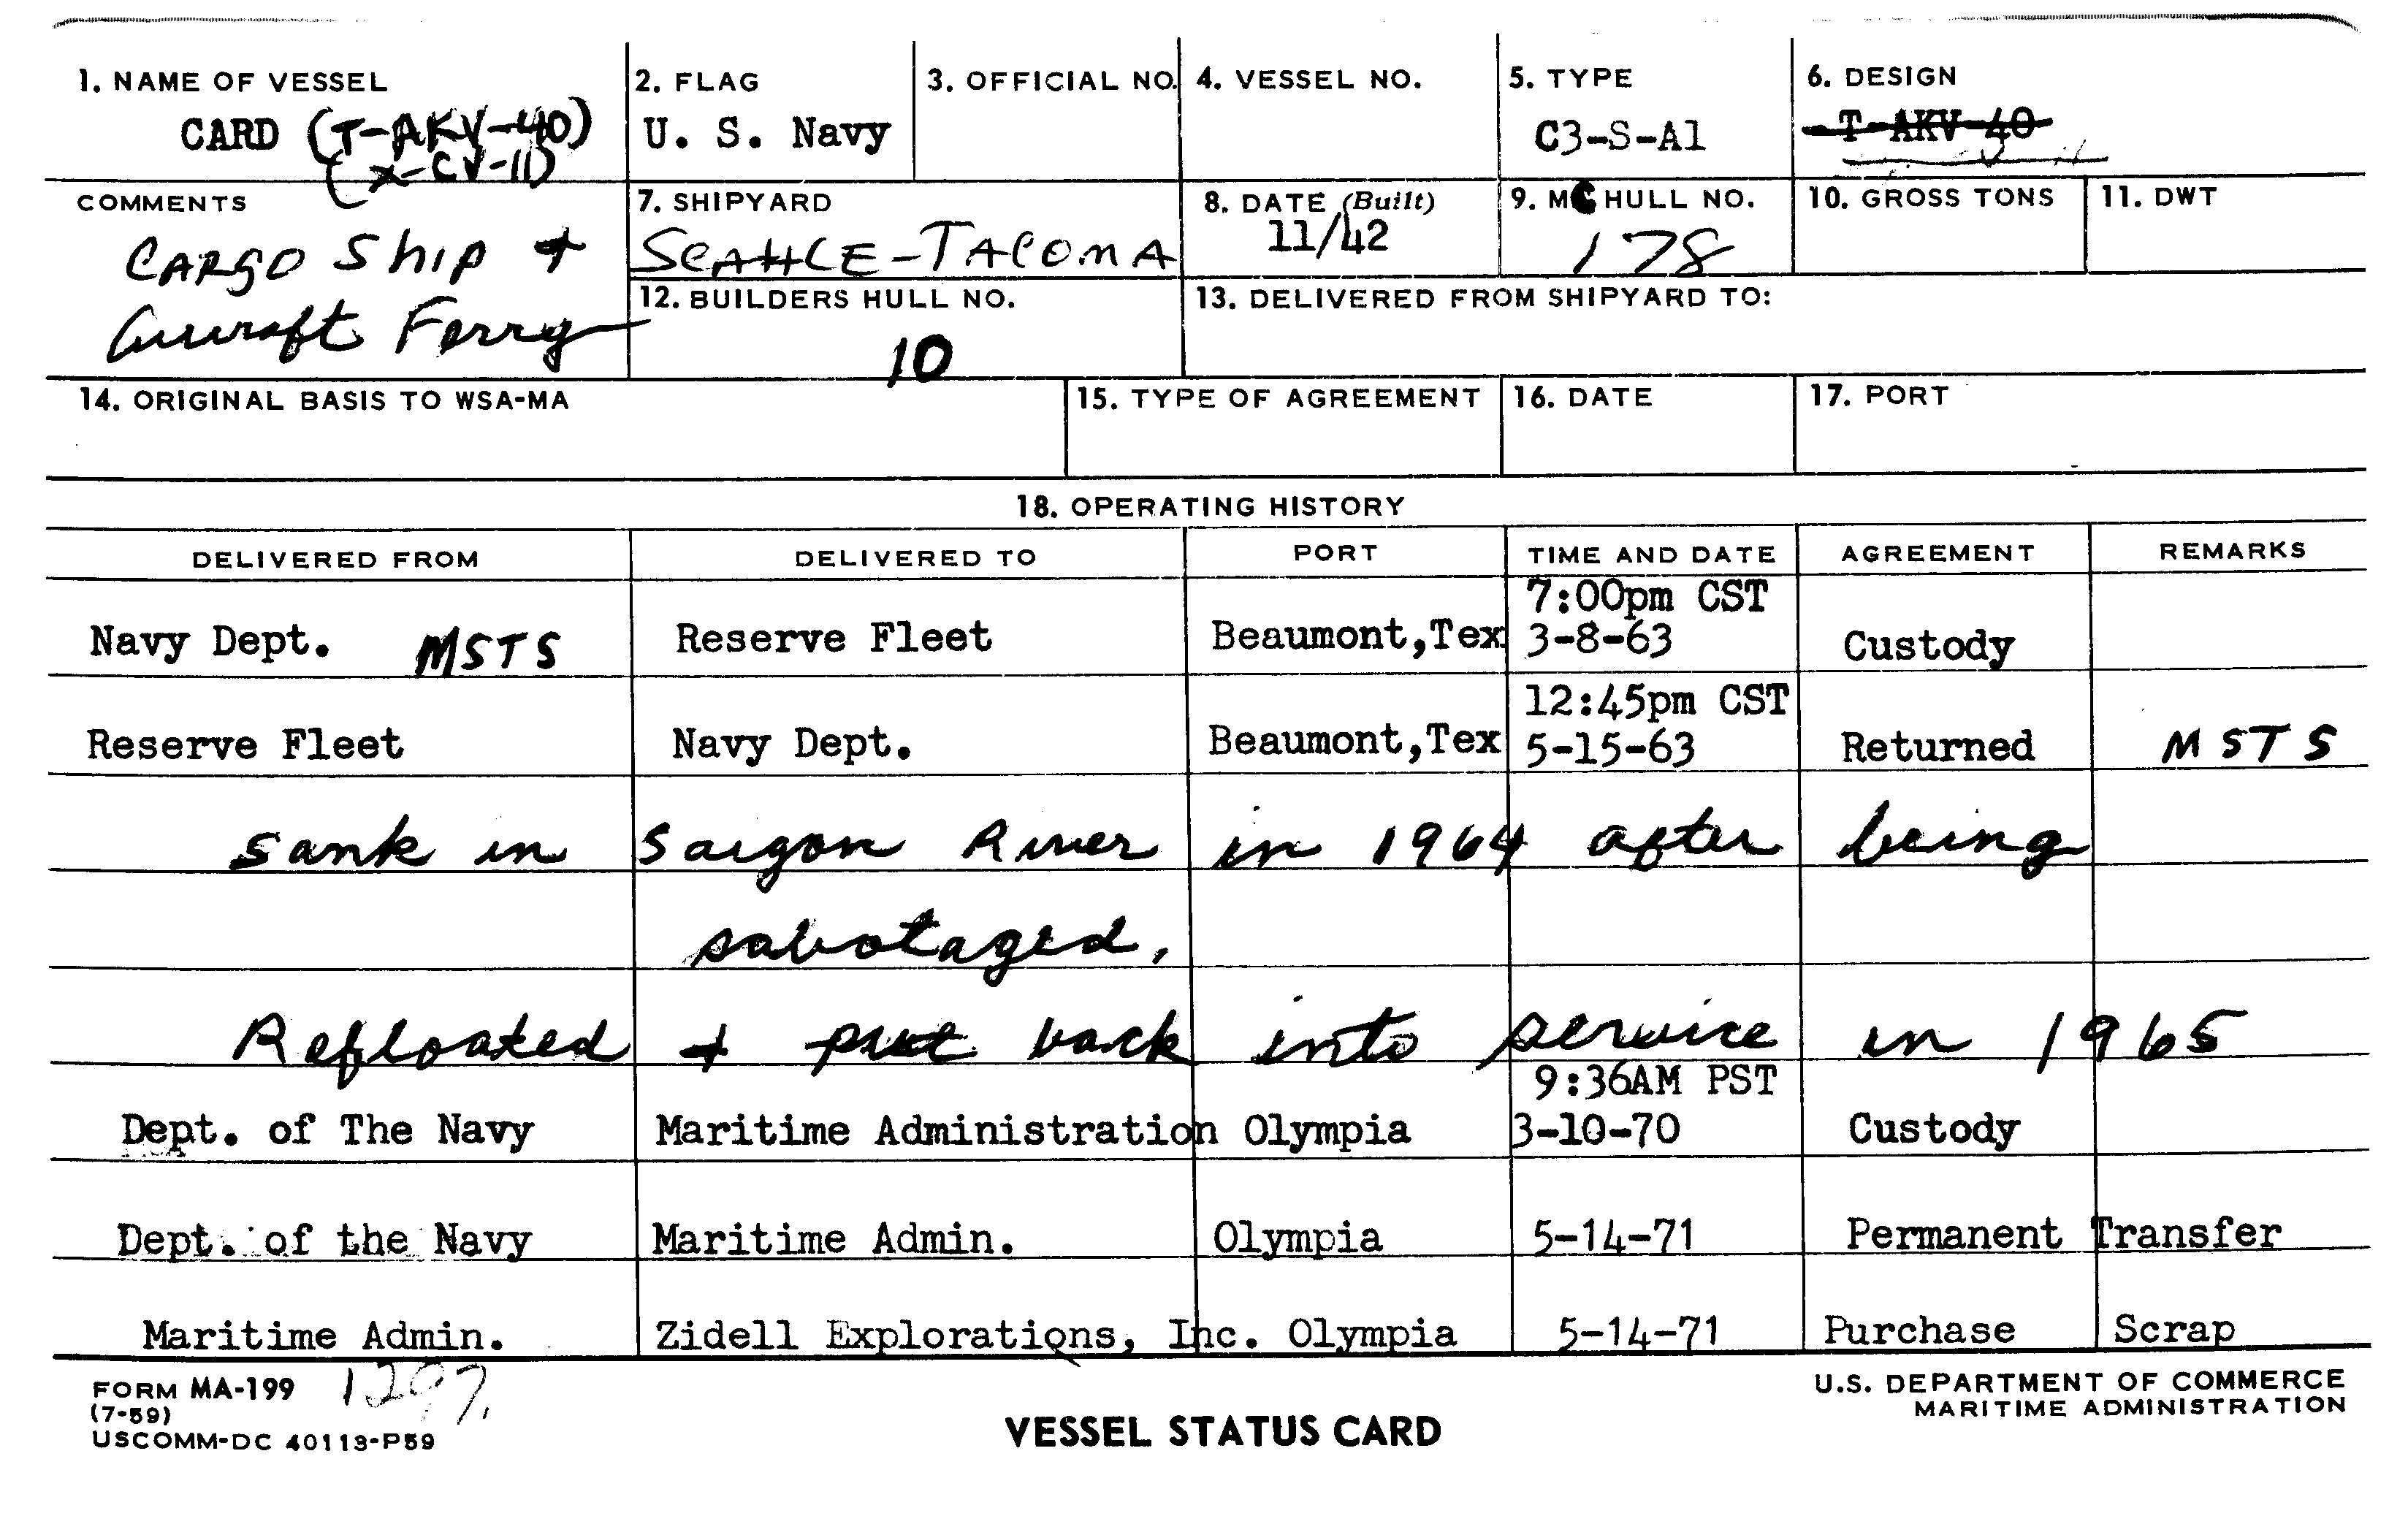 1. NAME OF VESSEL
CARD (T-AKV-40)
(X-CV-11)
2. FLAG
U. S. Navy
3. OFFICIAL NO.
4. VESSEL NO.
5. TYPE
C3-S-A1
6. DESIGN
T-AKV-40
COMMENTS
CARGO Ship +
Aircraft Ferry
7. SHIPYARD
SEATTLE-TACOMA
8. DATE (Built)
11/42
9. MC HULL NO.
178
10. GROSS TONS
11. DWT
12. BUILDERS HULL NO.
10
13. DELIVERED FROM SHIPYARD TO:
14. ORIGINAL BASIS TO WSA-MA
15. TYPE OF AGREEMENT
16. DATE
17. PORT
18. OPERATING HISTORY
DELIVERED FROM DELIVERED TO PORT TIME AND DATE AGREEMENT REMARKS
7:00pm CST
Navy Dept. MSTS Reserve Fleet Beaumont,Tex 3-8-63 Custody
12:45pm CST
Reserve Fleet Navy Dept. Beaumont,Tex 5-15-63 Returned MSTS
sank in Saigon River in 1964 after being
sabotaged.
Refloated + put back into service in 1965
9:36AM PST
Dept. of The Navy Maritime Administration Olympia 3-10-70 Custody
Dept. of the Navy Maritime Admin. Olympia 5-14-71 Permanent Transfer
Maritime Admin. Zidell Explorations, Inc. Olympia 5-14-71 Purchase Scrap
FORM MA-199
(7-59)
USCOMM-DC 40113-P59
VESSEL STATUS CARD
U.S. DEPARTMENT OF COMMERCE
MARITIME ADMINISTRATION